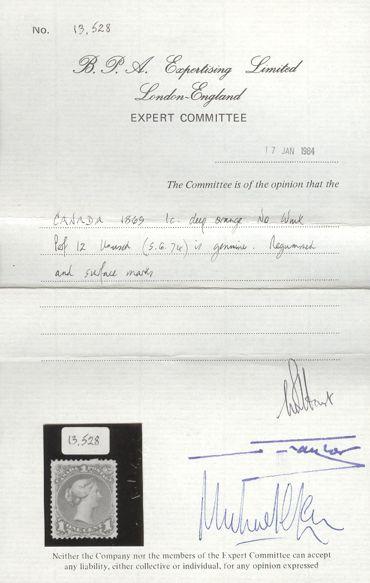 No. 13,528
B. P. A. Expertising Limited
London-England
EXPERT COMMITTEE
17 JAN 1984
The Committee is of the opinion that the
CANADA 1869 1c. deep orange No Wmk
Perf 12 Unused (S.G. 76) is genuine. Regummed
and surface marks
13,528
CANADA POSTAGE
1 ONE CENT 1
Neither the Company nor the members of the Expert Committee can accept
any liability, either collective or individual, for any opinion expressed